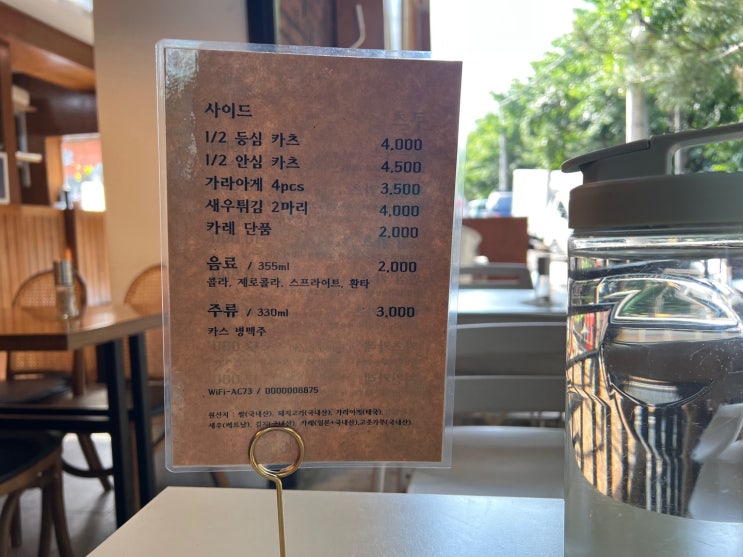 사이드
1/2 등심 카츠 4,000
1/2 안심 카츠 4,500
가라아게 4pcs 3,500
새우튀김 2마리 4,000
카레 단품 2,000
음료 / 355ml 2,000
콜라, 제로콜라, 스프라이트, 환타
주류 / 330ml 3,000
카스 병맥주
WiFi-AC73 / 0000008875
원산지 : 쌀(국내산), 돼지고기(국내산), 가라아게(태국),
새우(베트남), 카레(일본+국내산),고춧가루(국내산)